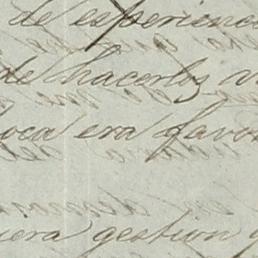 de experienc
de hacerlos v
oca era favor
era gestion y